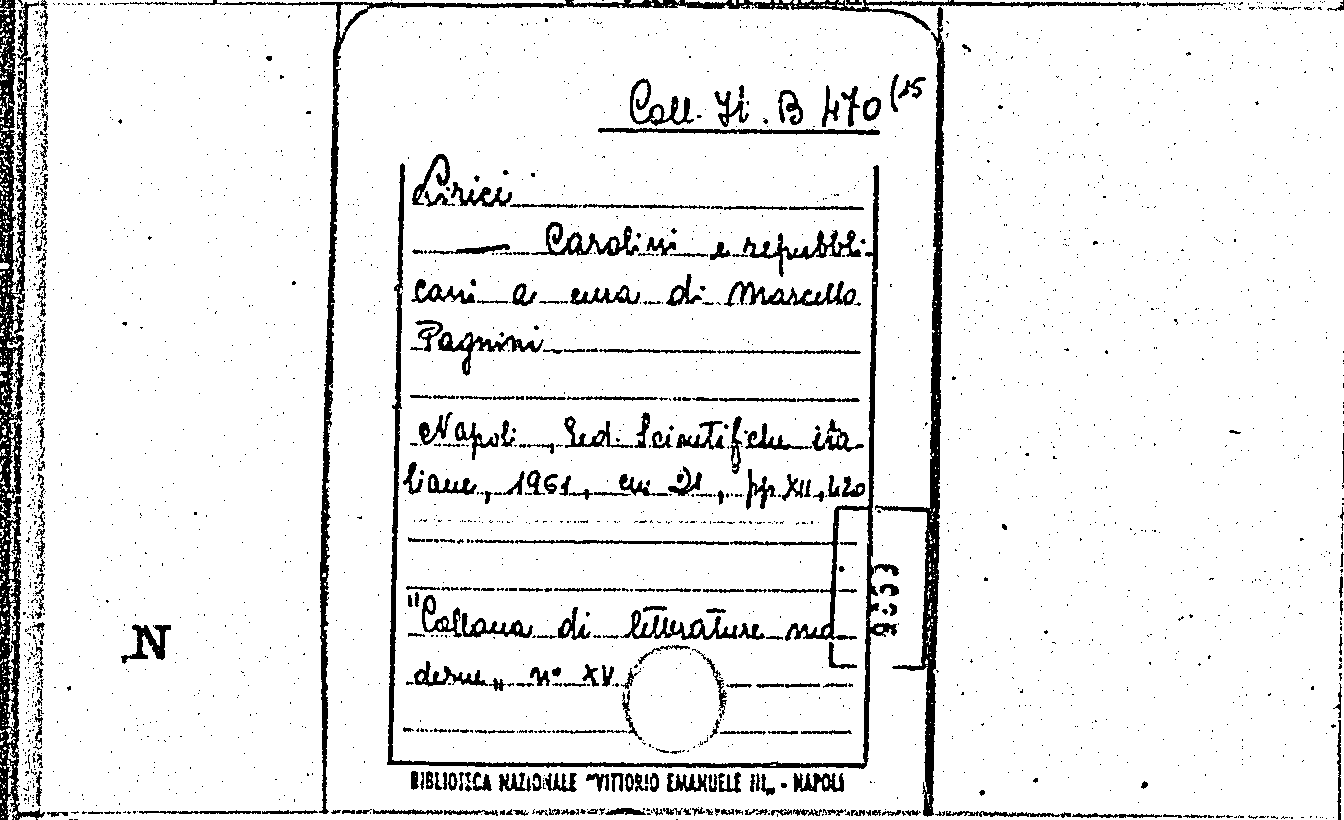 Coll. It. B 470 (15
Lirici
— Carolini e repubbli-
cani a cura di Marcello
Pagnini
Napoli, Ed. Scientifiche ita-
liane, 1961, in 21, pp. XII, 420
"Collana di letterature mo-
derne„ n° XV
N
BIBLIOTECA NAZIONALE "VITTORIO EMANUELE III„ - NAPOLI